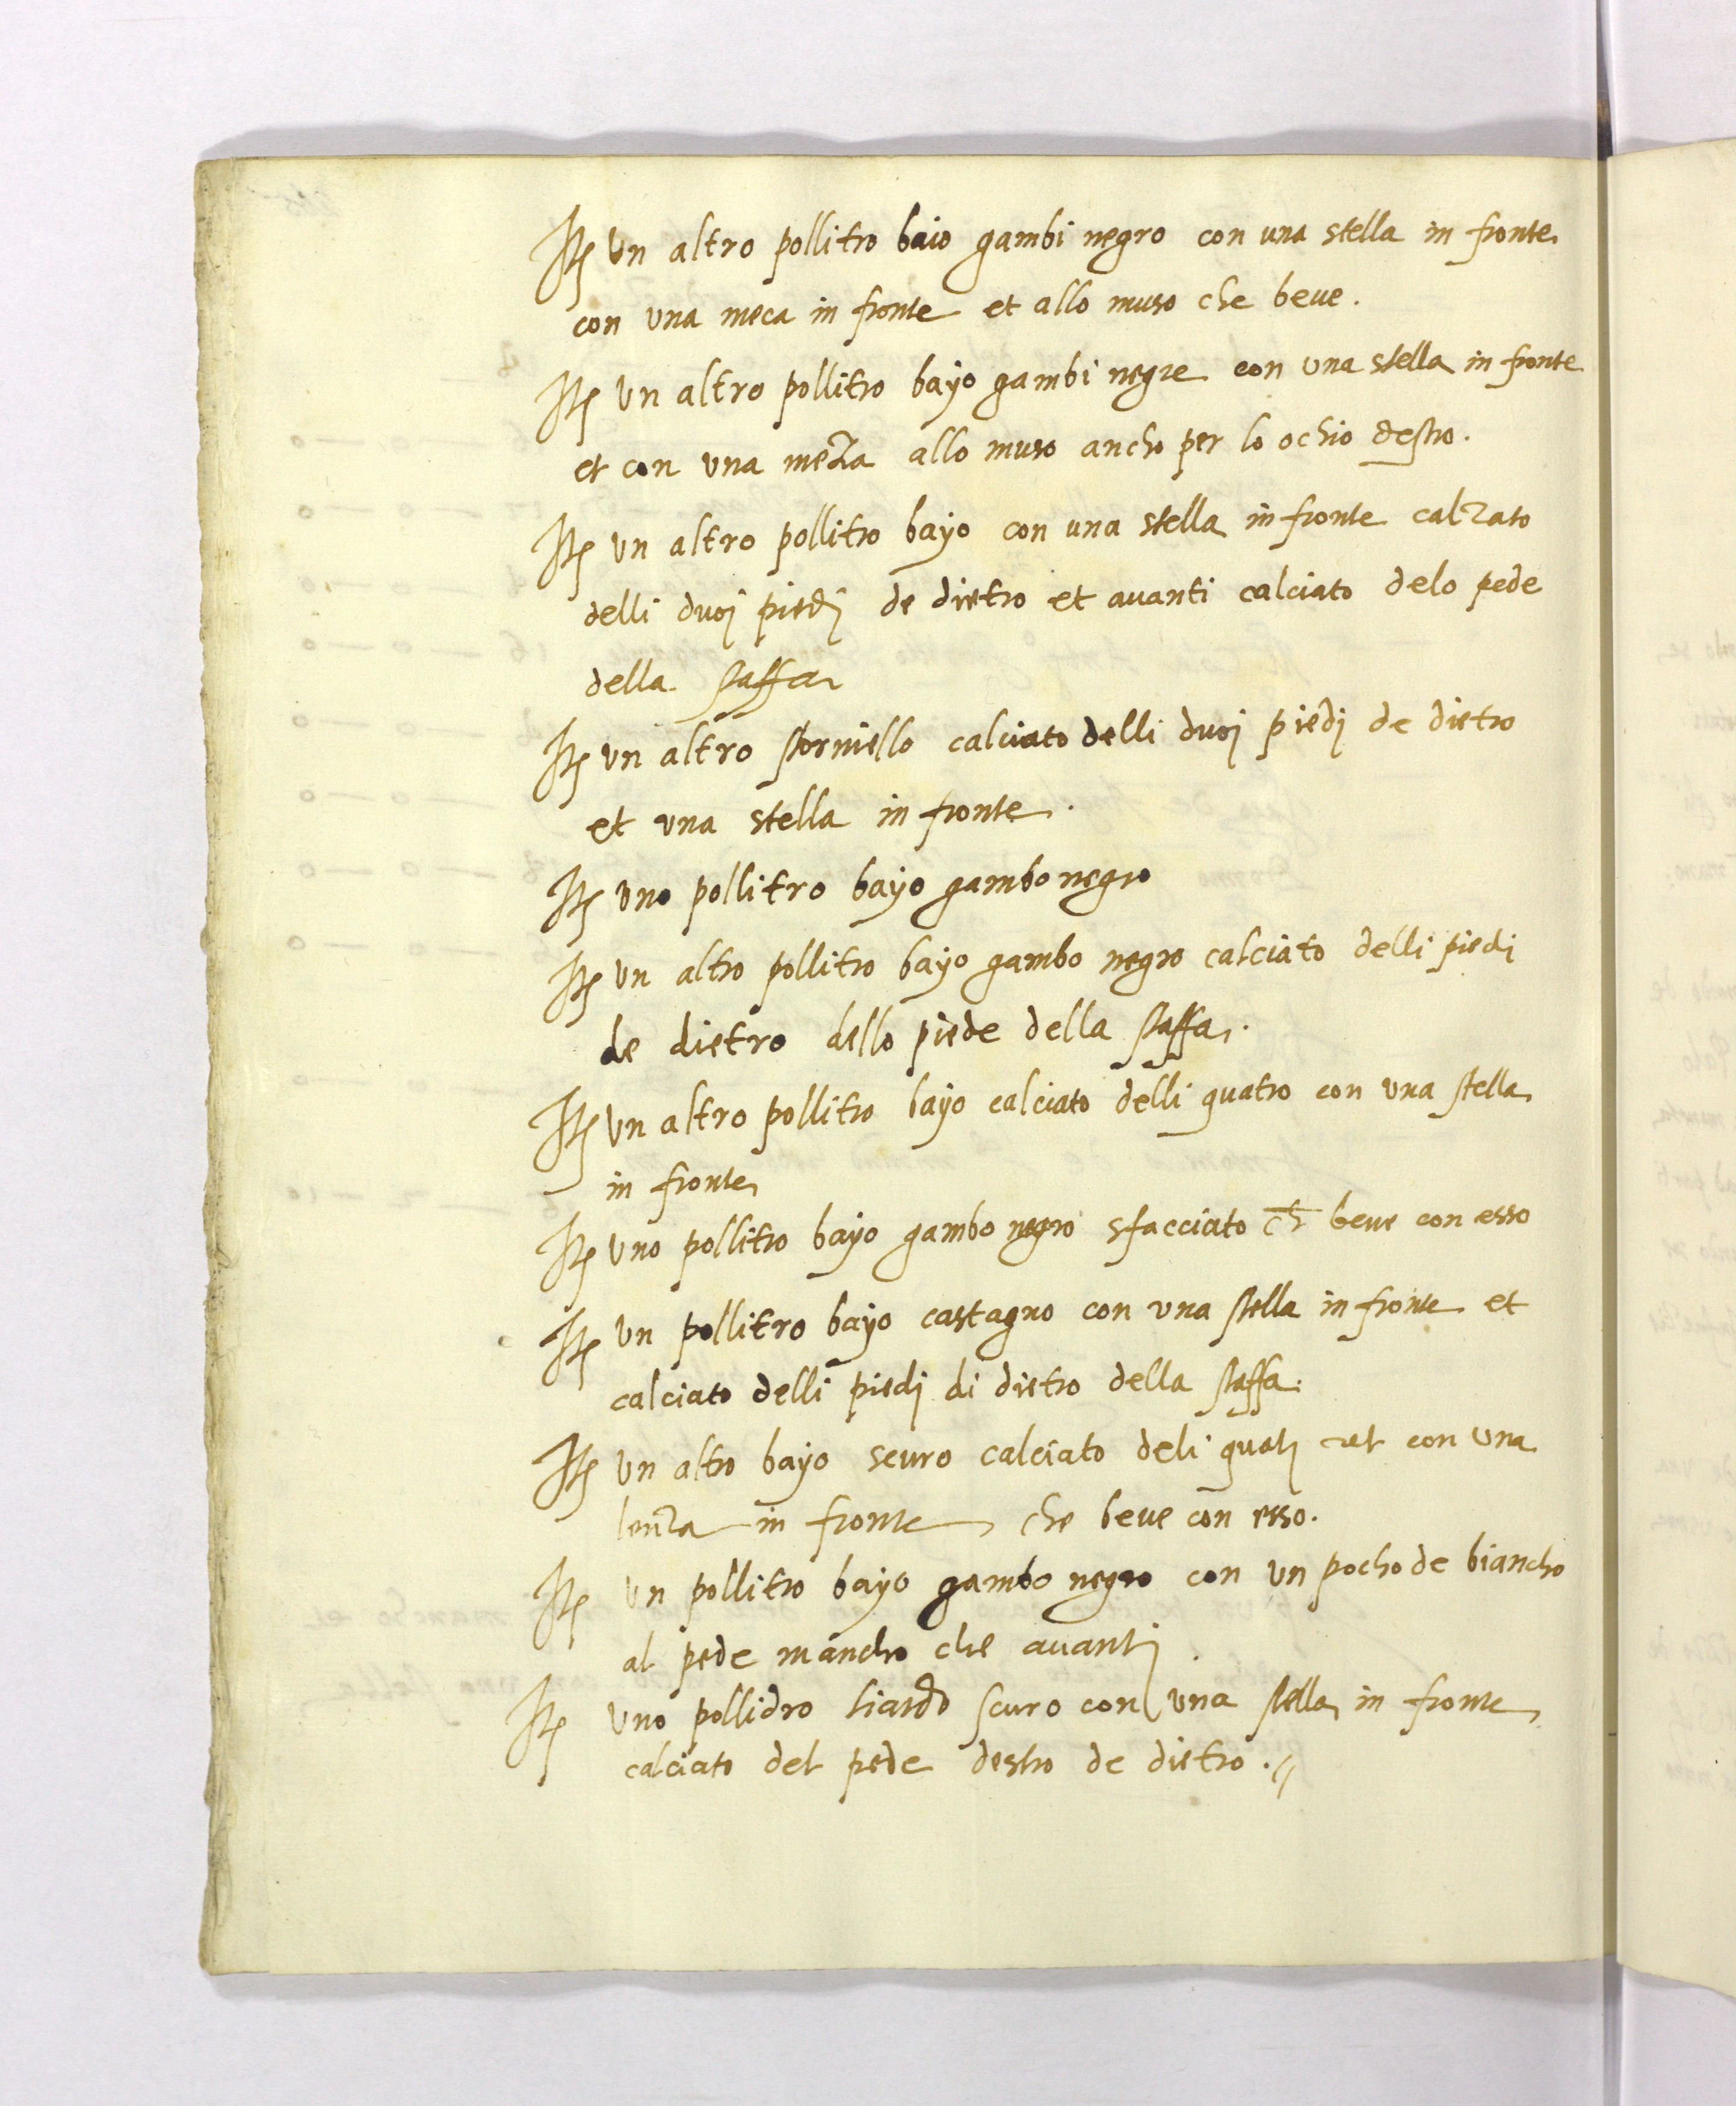 It un altro pollitro baio gambi negro con una stella in fronte
con una meca in fronte et allo muso che beue.
It un altro pollitro bayo gambi negre con una stella in fronte
et con una meza allo muso ancho per lo ochio destro.
It un altro pollitro bayo con una stella in fronte calzato
delli duoj piedj de dietro et auanti calciato delo pede
della staffa
It un altro storniello calciato delli duoj piedj de dietro
et una stella in fronte.
It uno pollitro bayo gambo negro
It un altro pollitro bayo gambo negro calciato delli piedi
de dietro dello piede della staffa.
It un altro pollitro bayo calciato delli quatro con una stella
in fronte
It uno pollitro bayo gambo negro sfacciato ch beue con esso
It un pollitro bayo castagno con una stella in fronte et
calciato delli piedj di dietro della staffa.
It un altro bayo scuro calciato deli con una
lenza in fronte che beue con esso.
It un pollitro bayo gambo negro con un pocho de biancho
al pede mancho che auantj.
It uno pollidro liardo scuro con una stella in fronte
calciato del pede destro de dietro.//